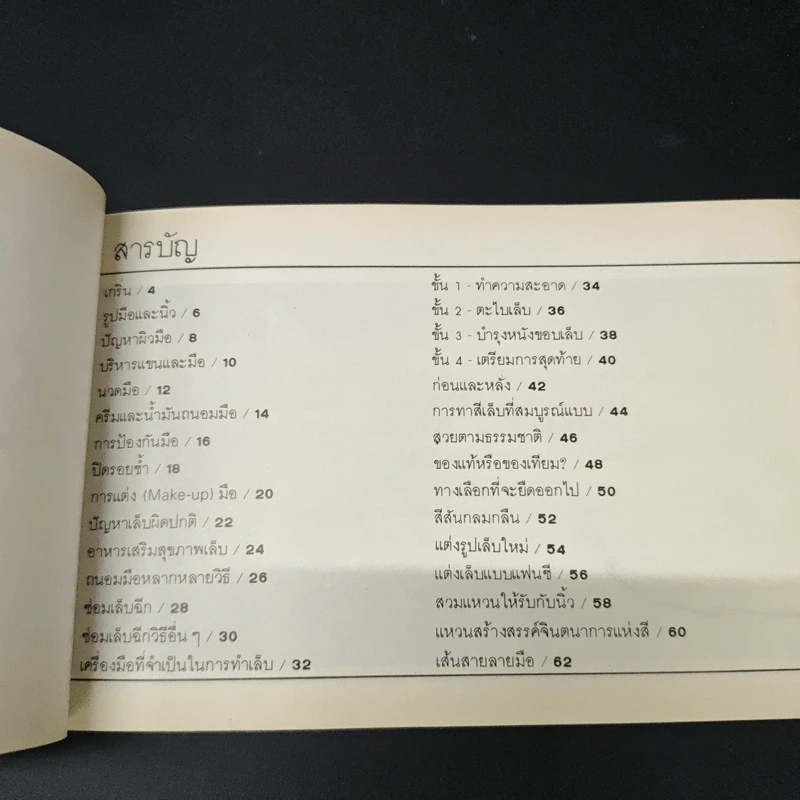 สารบัญ
เกริ่น / 4
รูปมือและนิ้ว / 6
ปัญหาผิวมือ / 8
บริหารแขนและมือ / 10
นวดมือ / 12
ครีมและน้ำมันถนอมมือ / 14
การป้องกันมือ / 16
ปิดรอยช้ำ / 18
การแต่ง (Make-up) มือ / 20
ปัญหาเล็บผิดปกติ / 22
อาหารเสริมสุขภาพเล็บ / 24
ถนอมมือหลากหลายวิธี / 26
ซ่อมเล็บฉีก / 28
ซ่อมเล็บฉีกวิธีอื่น ๆ / 30
เครื่องมือที่จำเป็นในการทำเล็บ / 32
ขั้น 1 - ทำความสะอาด / 34
ขั้น 2 - ตะไบเล็บ / 36
ขั้น 3 - บำรุงหนังขอบเล็บ / 38
ขั้น 4 - เตรียมการสุดท้าย / 40
ก่อนและหลัง / 42
การทาสีเล็บที่สมบูรณ์แบบ / 44
สวยตามธรรมชาติ / 46
ของแท้หรือของเทียม? / 48
ทางเลือกที่จะยืดออกไป / 50
สีสันกลมกลืน / 52
แต่งรูปเล็บใหม่ / 54
แต่งเล็บแบบแฟนซี / 56
สวมแหวนให้รับกับนิ้ว / 58
แหวนสร้างสรรค์จินตนาการแห่งสี / 60
เส้นสายลายมือ / 62